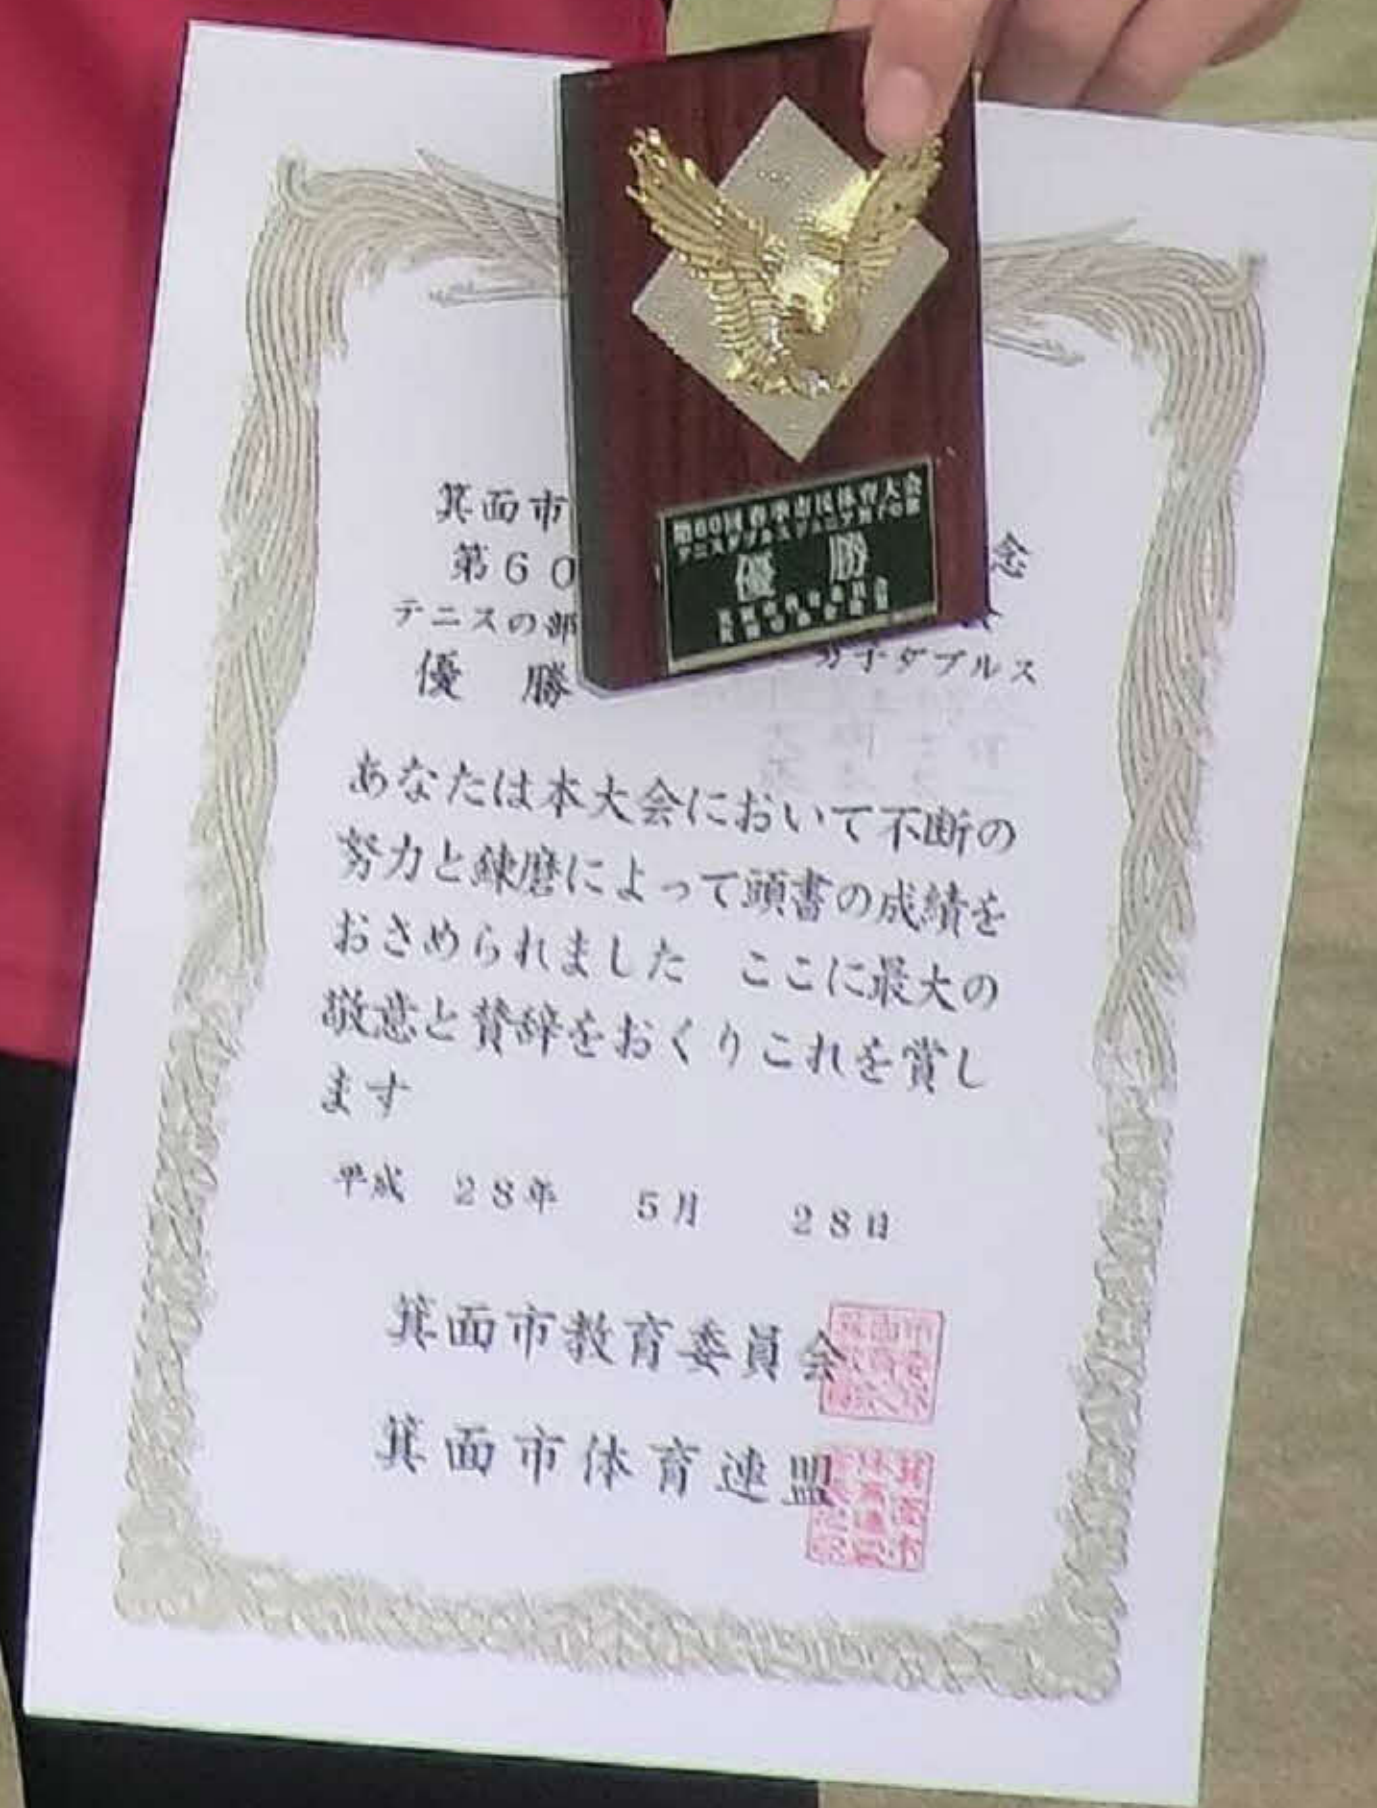 第60回春季市民体育大会
テニスダブルスジュニア男子の部
優 勝
箕面市
念
第60
テニスの部
男子ダブルス
優 勝
あなたは本大会において不断の
努力と錬磨によって頭書の成績を
おさめられました ここに最大の
敬意と賛辞をおくりこれを賞し
ます
平成 28年 5月 28日
箕面市教育委員会
箕面市体育連盟